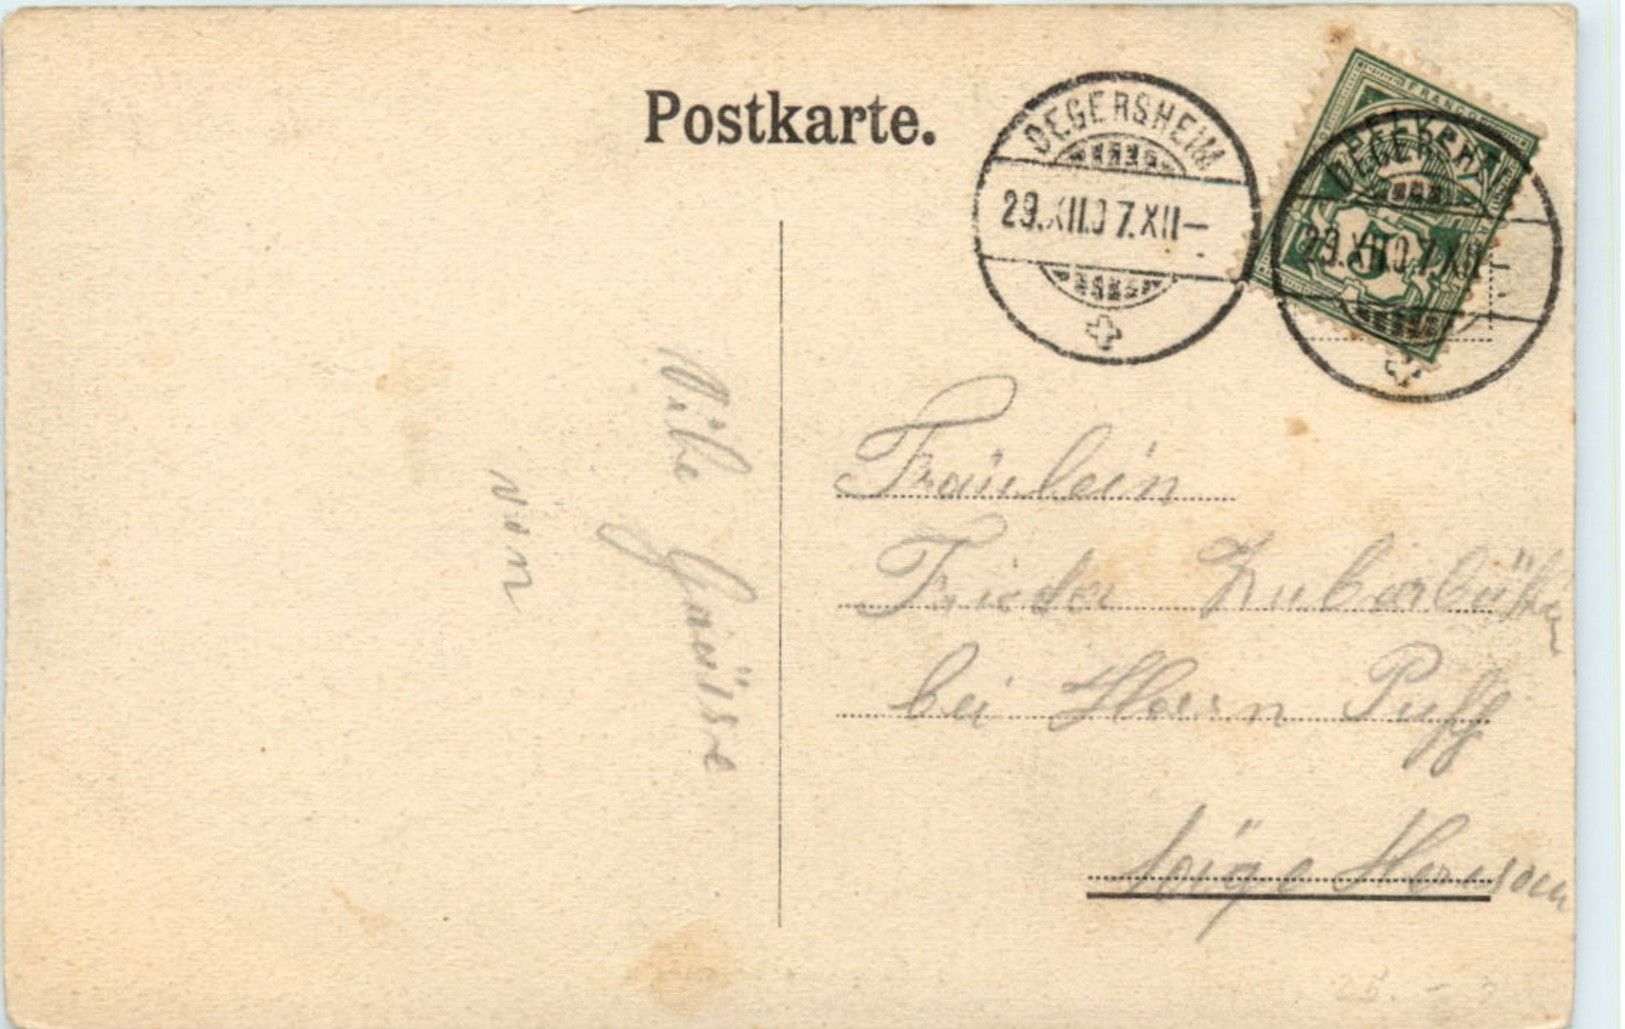 Postkarte.
DEGERSHEIM
29.XII.07.XII–
FRANCO
HELVETIA
DEGERSHEIM
29.XII.07.XII
5
Fräulein
Frieda
bei Herrn Puff
Herisau
Viele Grüsse
von
25.-